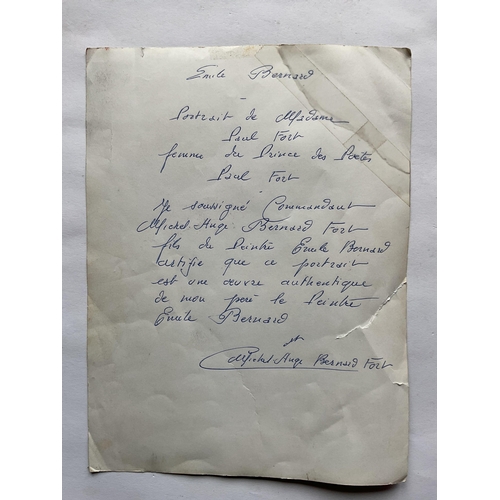 Emile Bernard
-
Portrait de Madame
Paul Fort
femme du Prince des Poètes
Paul Fort
-
Je soussigné Commandant
Michel-Ange Bernard Fort
fils du Peintre Emile Bernard
certifie que ce portrait
est une œuvre authentique
de mon père le Peintre
Emile Bernard
Michel-Ange Bernard Fort